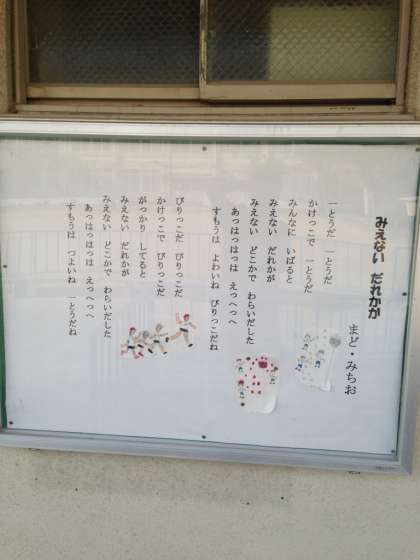 みえない だれかが
まど・みちお
一とうだ 一とうだ
かけっこで 一とうだ
みんなに いばると
みえない だれかが
みえない どこかで わらいだした
あっはっはっは えっへっへ
すもうは よわいね びりっこだね
びりっこだ びりっこだ
かけっこで びりっこだ
がっかり してると
みえない だれかが
みえない どこかで わらいだした
あっはっはっは えっへっへ
すもうは つよいね 一とうだね